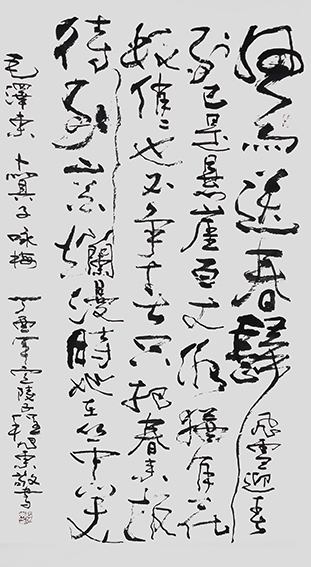 風雨送春歸飛雪迎春
到已是懸崖百丈冰猶有花
枝俏俏也不爭春只把春來報
待到山花爛漫時她在叢中笑
毛澤東 卜算子咏梅 丁酉年 敬書